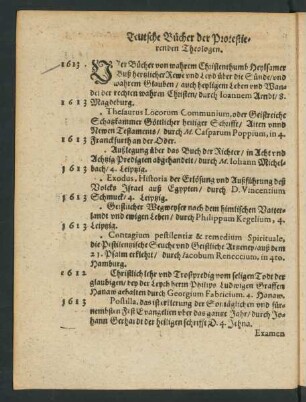 Teutsche Bücher der Protestie-
renden Theologen.
1613. Vier Bücher von wahrem Christenthumb Heylsamer
Buß hertzlicher Rewe und Leyd über die Sünde/und
wahrem Glauben / auch heyligem Leben und Wan-
del der rechten wahren Christen/ durch Ioannem Arndt/ 8.
1613 Magdeburg.
Thesaurus Locorum Communium, oder Geistreiche
Schatzkammer Göttlicher heiliger Schrifft/ Alten vnd
Newen Testaments/ durch M. Casparum Poppium, in 4.
1613 Franckfurth an der Oder.
Außlegung über das Buch der Richter/ in Acht vnd
Achtzig Predigten abgehandelt/ durch M. Iohann Michel-
1613 bach/ 4. Leipzig.
Exodus, Historia der Erlösung und Außführung deß
Volcks Israel auß Egypten/ durch D. Vincentium
1613 Schmuck/ 4. Leipzig.
Geistlicher Wegweyser nach dem himlischen Vatter-
landt und ewigen Leben/ durch Philippum Kegelium, 4.
1613 Leipzig.
Contagium pestilentiæ & remedium Spirituale,
die Pestilentzische Seuche vnd Geistliche Artzney/auß dem
21. Psalm erklehrt/ durch Iacobum Reneccium, in 4to.
Hamburg.
1612 Christlich lehr vnd Trostpredig vom seligen Todt der
glaubigen/ bey der Leych herrn Philips Ludwigen Graffen
Hanaw gehalten durch Georgium Fabricium. 4. Hanaw.
1613 Postilla, das ist erklerung der Sontäglichen und für-
nembsten Fest Evangelien über das gantze Jahr/ durch Jo-
hann Gerhardt der heiligen schrifft D. 4. Jehna.
Examen